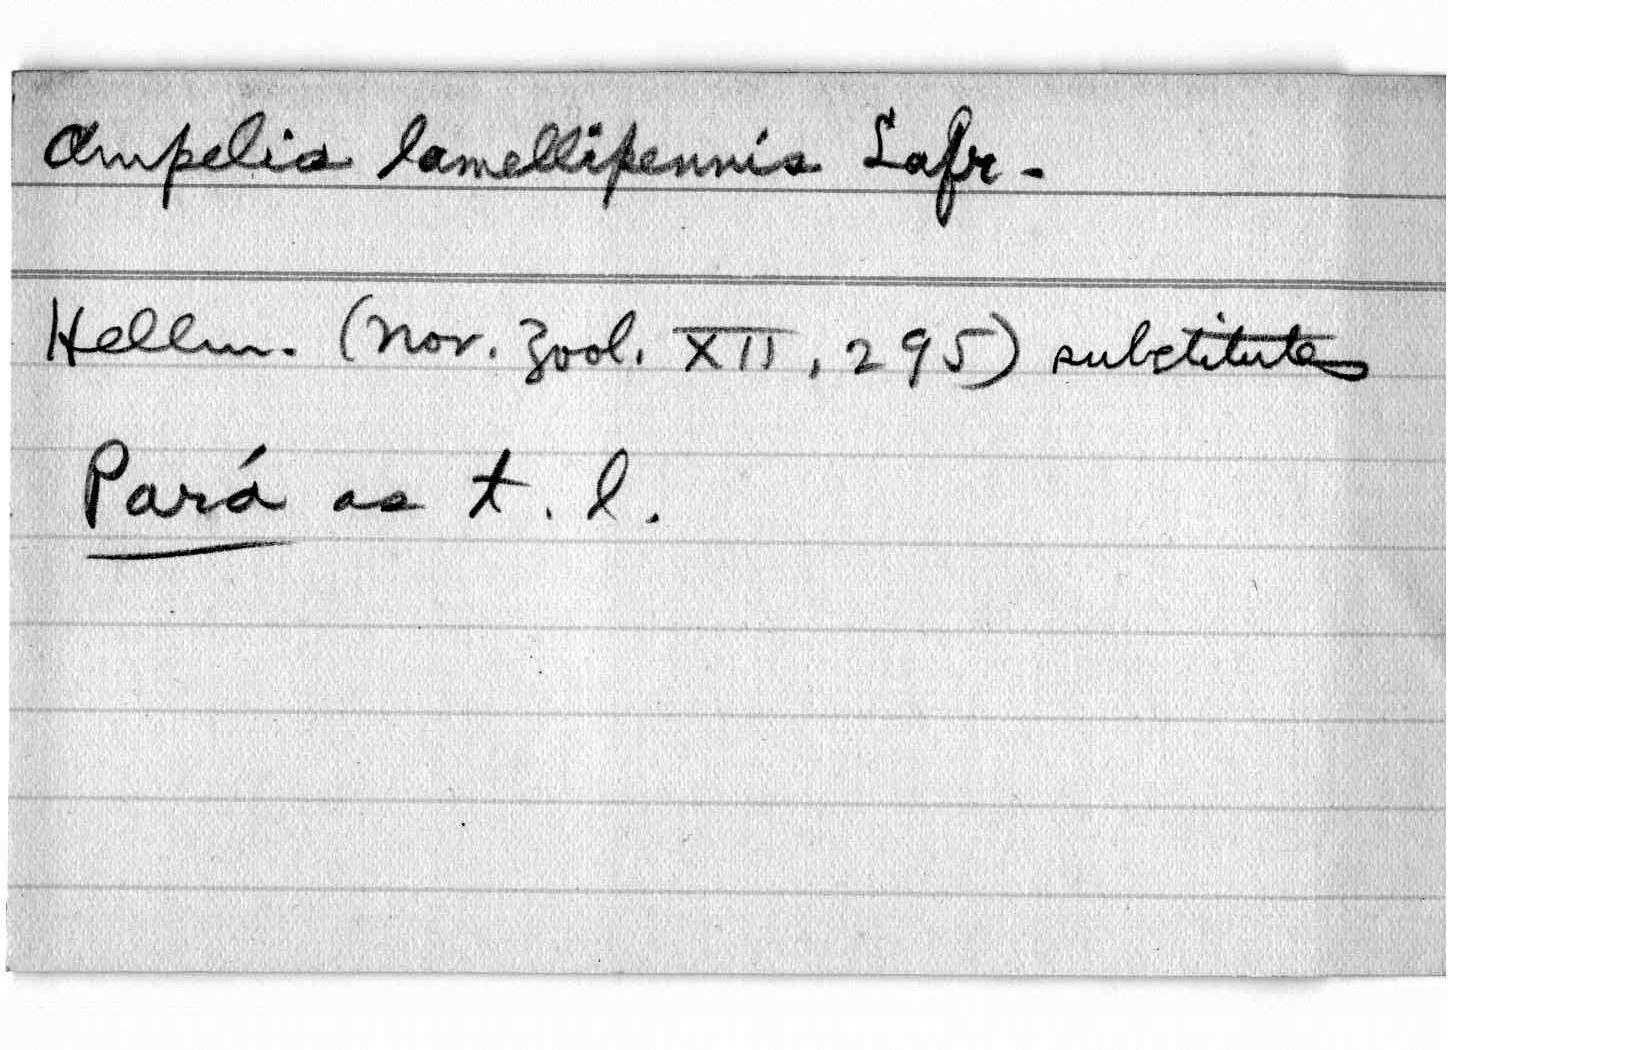 Ampelis lamellipennis Lafr.
Hellm. (Nov. Zool. XII, 295) substitutes
Pará as t. l.